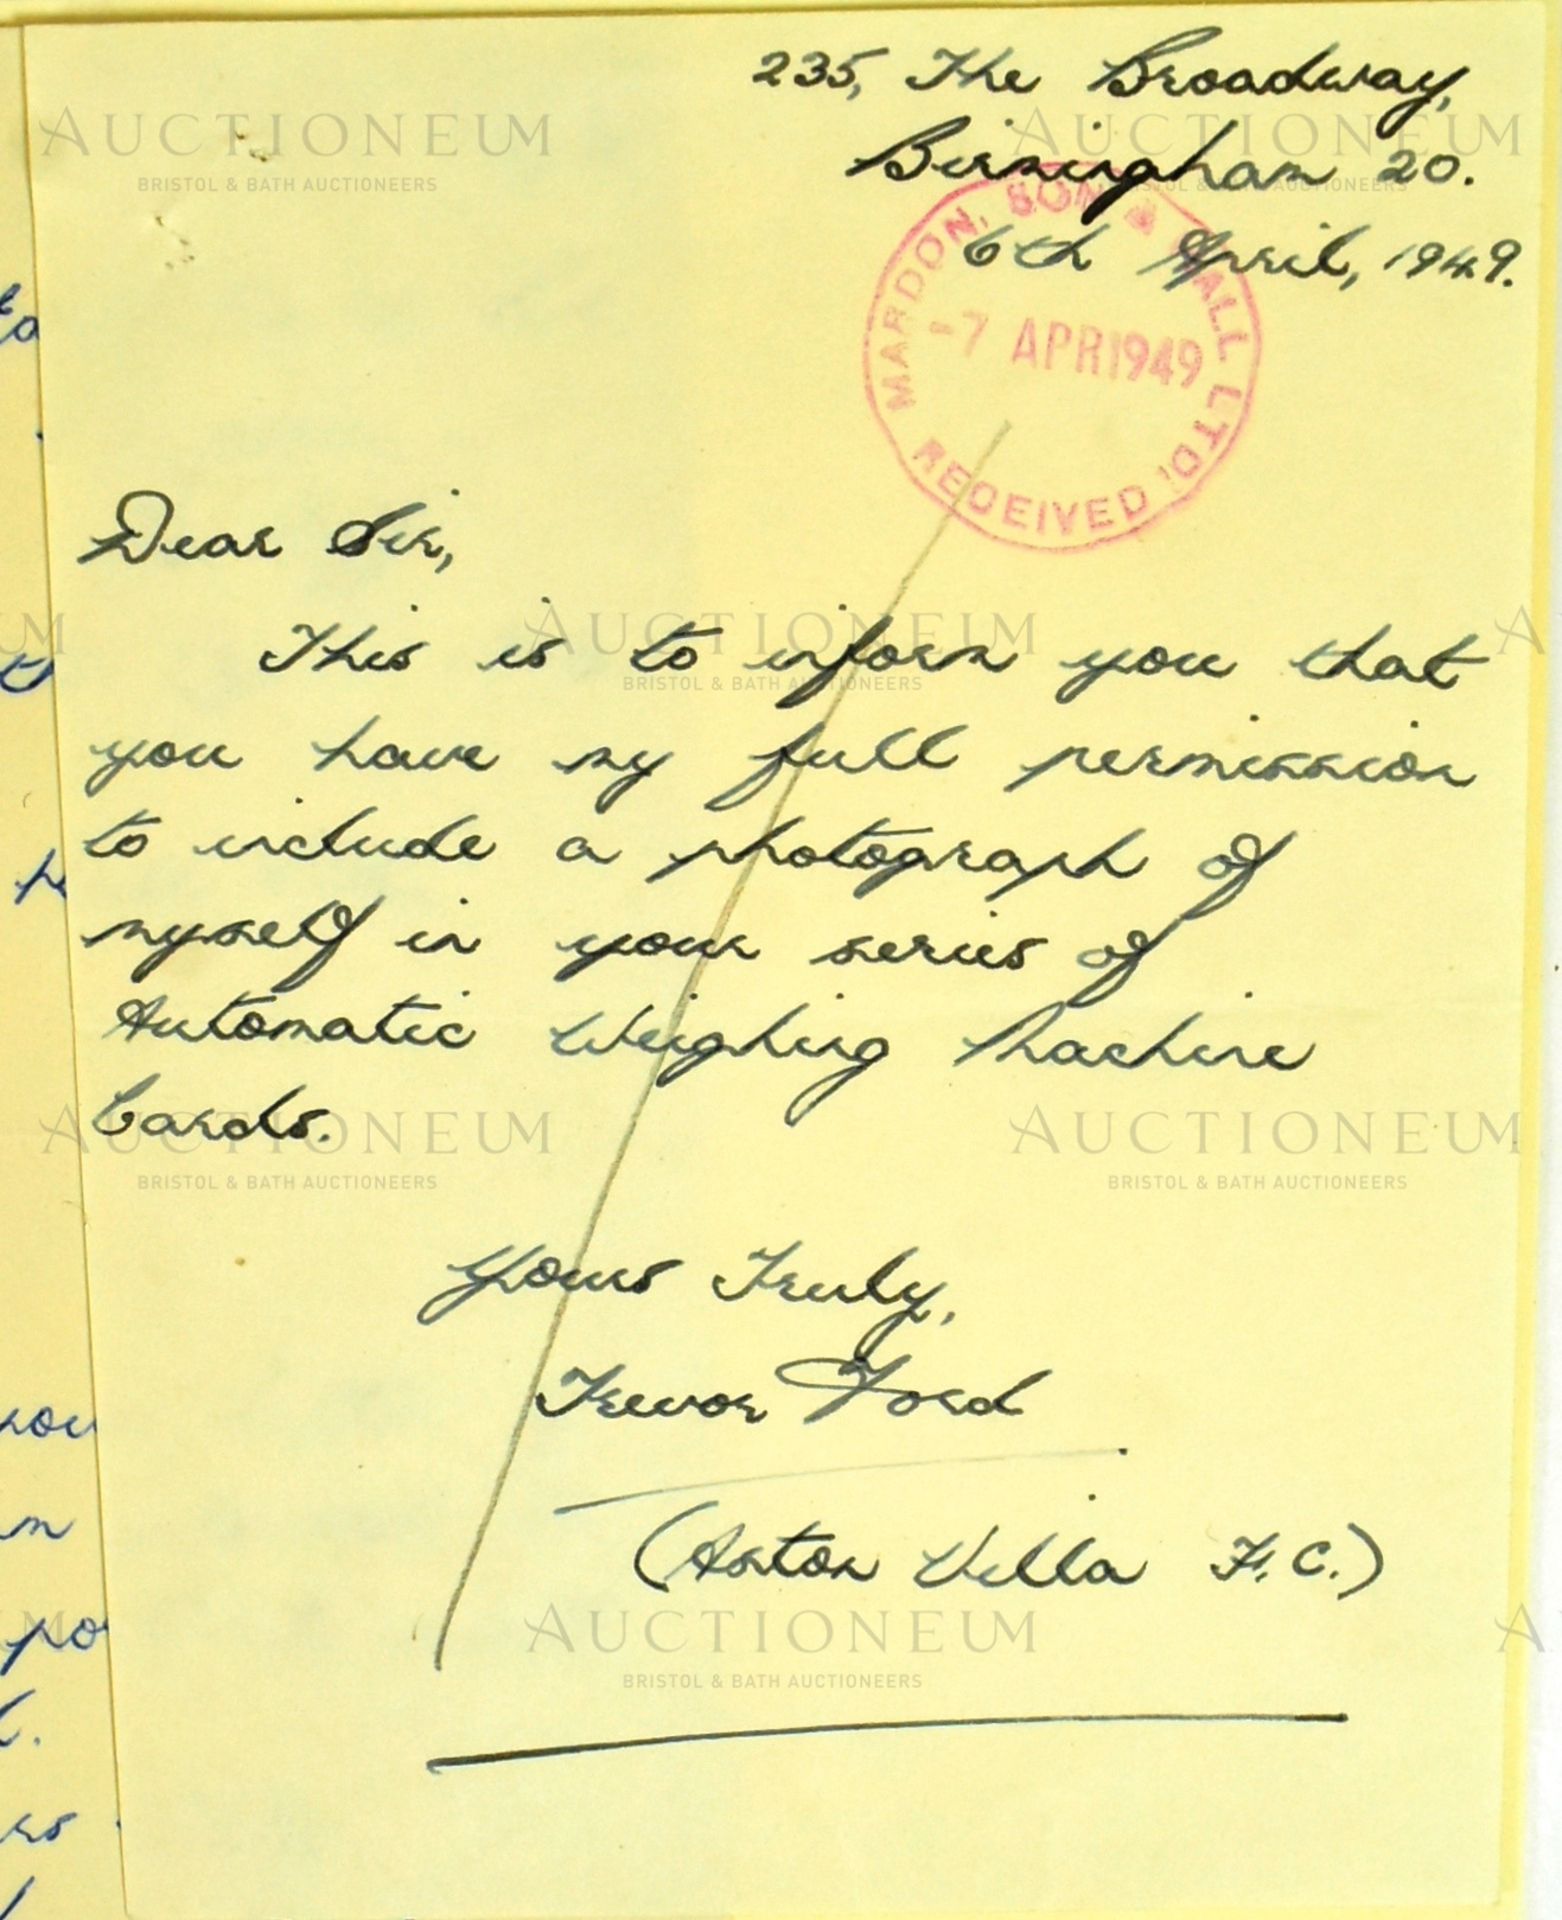 235, The Broadway,
Birmingham 20.
6th April, 1949.
MARDON, SON & HALL LTD,
-7 APR 1949
RECEIVED
Dear Sir,
This is to inform you that
you have my full permission
to include a photograph of
myself in your series of
Automatic Weighing Machine
Cards.
Yours Truly,
Trevor Ford
(Aston Villa F.C.)
AUCTIONEUM
BRISTOL & BATH AUCTIONEERS
AUCTIONEUM
BRISTOL & BATH AUCTIONEERS
AUCTIONEUM
BRISTOL & BATH AUCTIONEERS
AUCTIONEUM
BRISTOL & BATH AUCTIONEERS
AUCTIONEUM
BRISTOL & BATH AUCTIONEERS
AUCTIONEUM
BRISTOL & BATH AUCTIONEERS